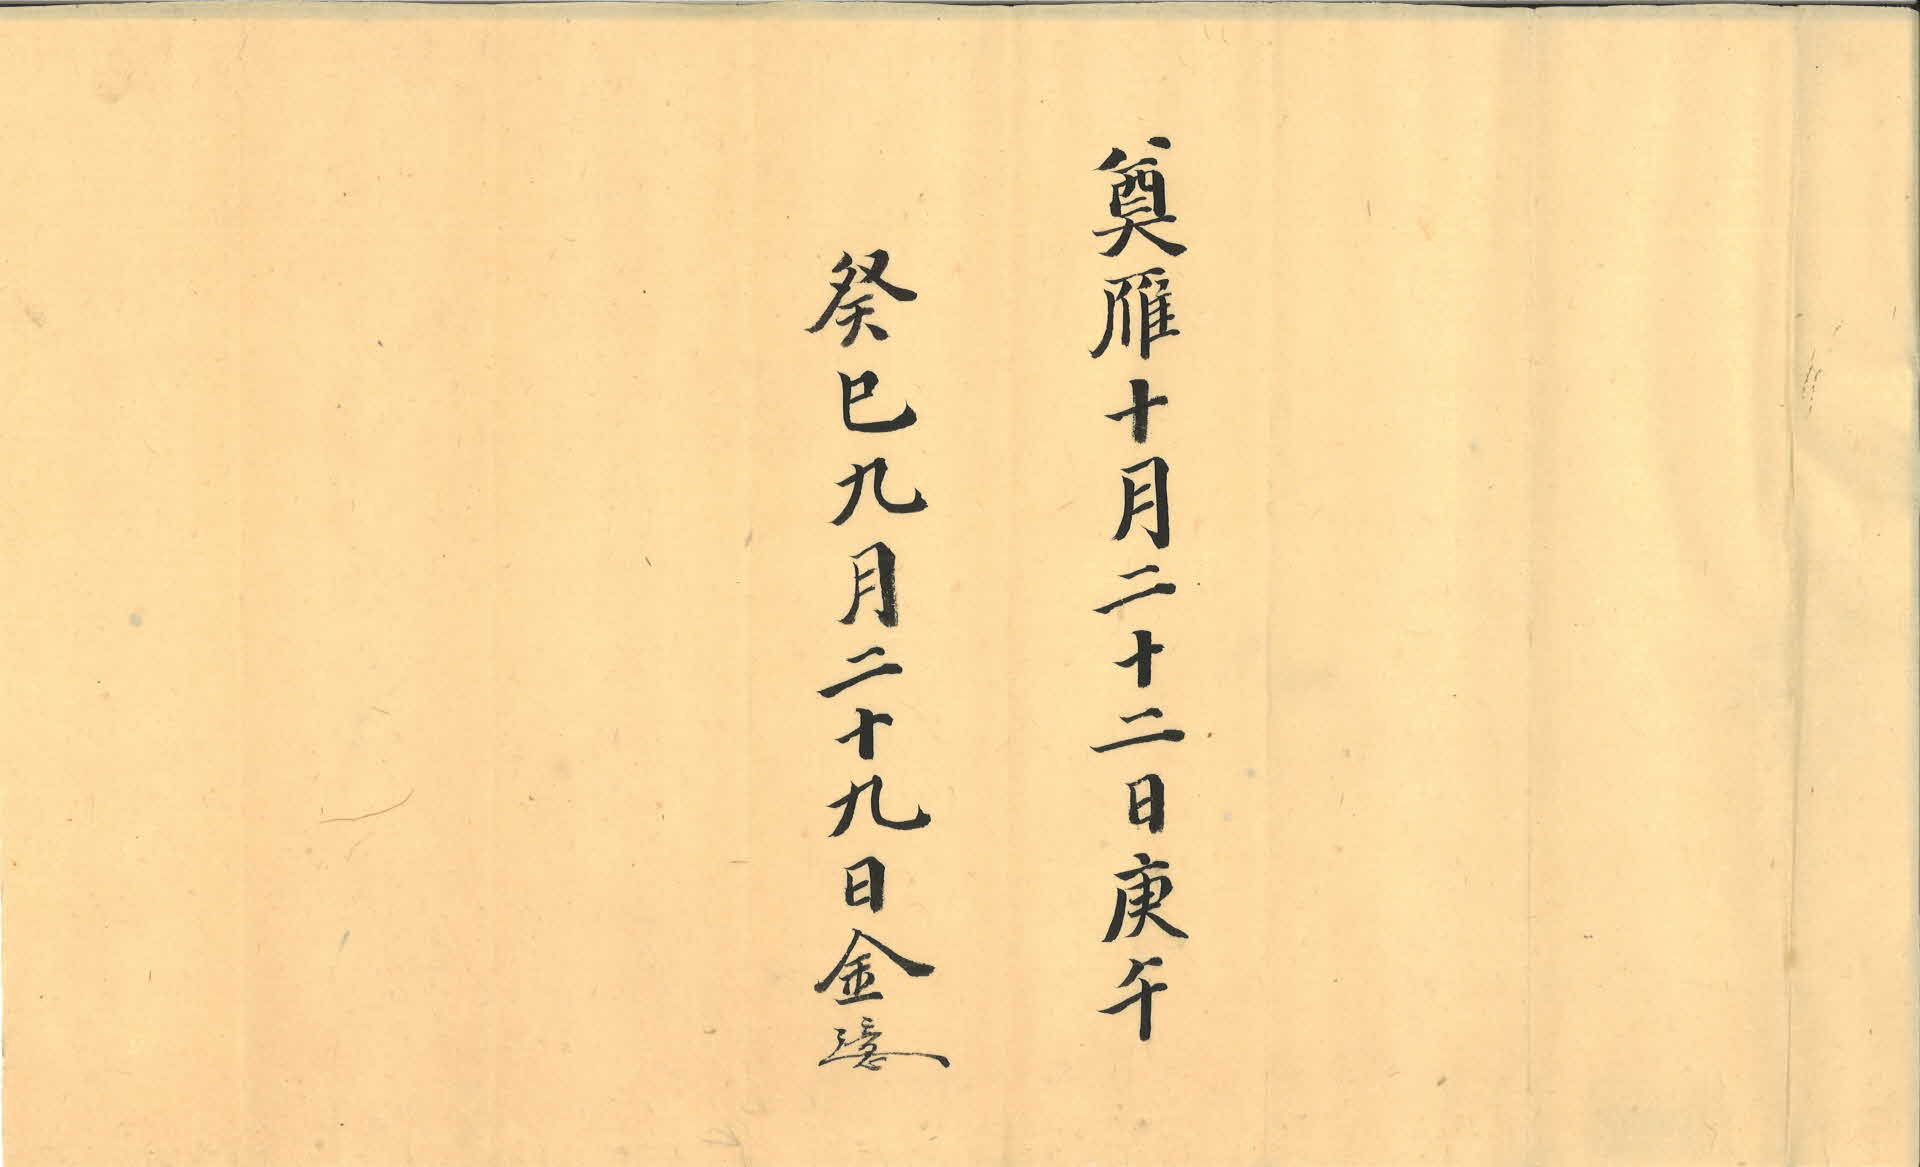 奠雁十月二十二日庚午
癸巳九月二十九日金